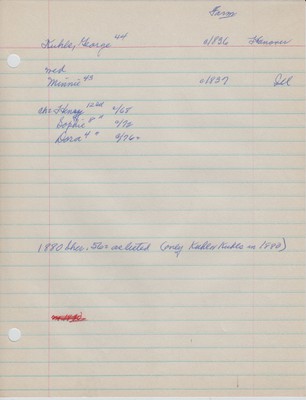 Farm
Kuhls, George 44 c/1836 Hanover
wed
"Minnie" 43 c/1837 Ill
chs Henry 12 c/68
Sophie 8 " c/72
Dora 4 " c/76
1880 Shea. Ill as listed (only Kuhls in 1880)